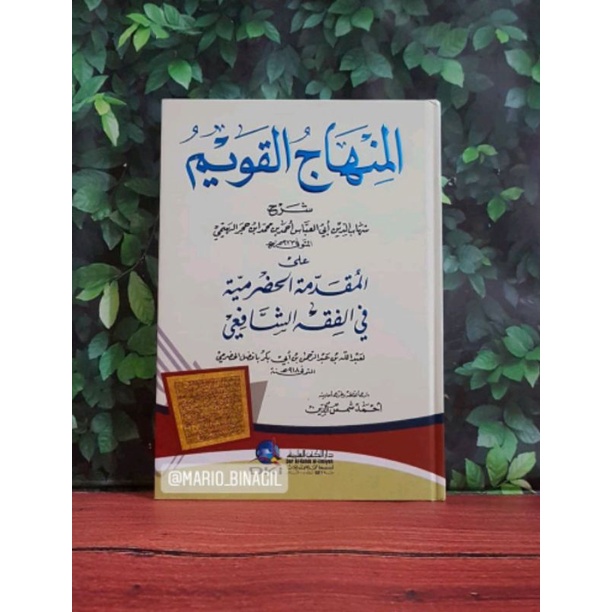 المنهاج القويم
شرح
شهاب الدين أبي العباس أحمد بن محمد ابن حجر الهيتمي
على
المقدمة الحضرمية
في الفقه الشافعي
لعبد الله بن عبد الرحمن بن أبي بكر بافضل الحضرمي
المتوفى ٩١٨ هـ سنة
أحمد شمس الدين
دار الكتب العلمية
Dar Al-Kotob Al-ilmiyah
@MARIO_BINACIL